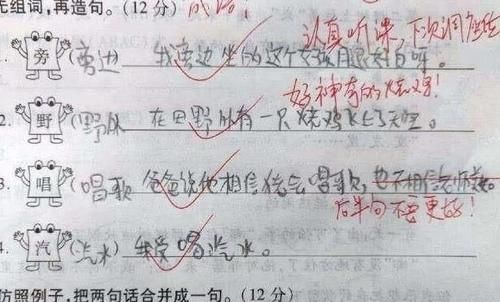 组词,再造句。(12 分)
认真听课,下次调座位
旁 (旁边) 我旁边坐的这个女孩腿好白呀。
好神奇的烧鸡!
2. 野 (野外) 在田野外有一只烧鸡飞上了天空。
3. 唱 (唱歌) 爸爸说他相信猪会唱歌,也不相信老师
后半句不要更好!
汽 (汽水) 我爱喝汽水。
仿照例子,把两句话合并成一句。(12 分)